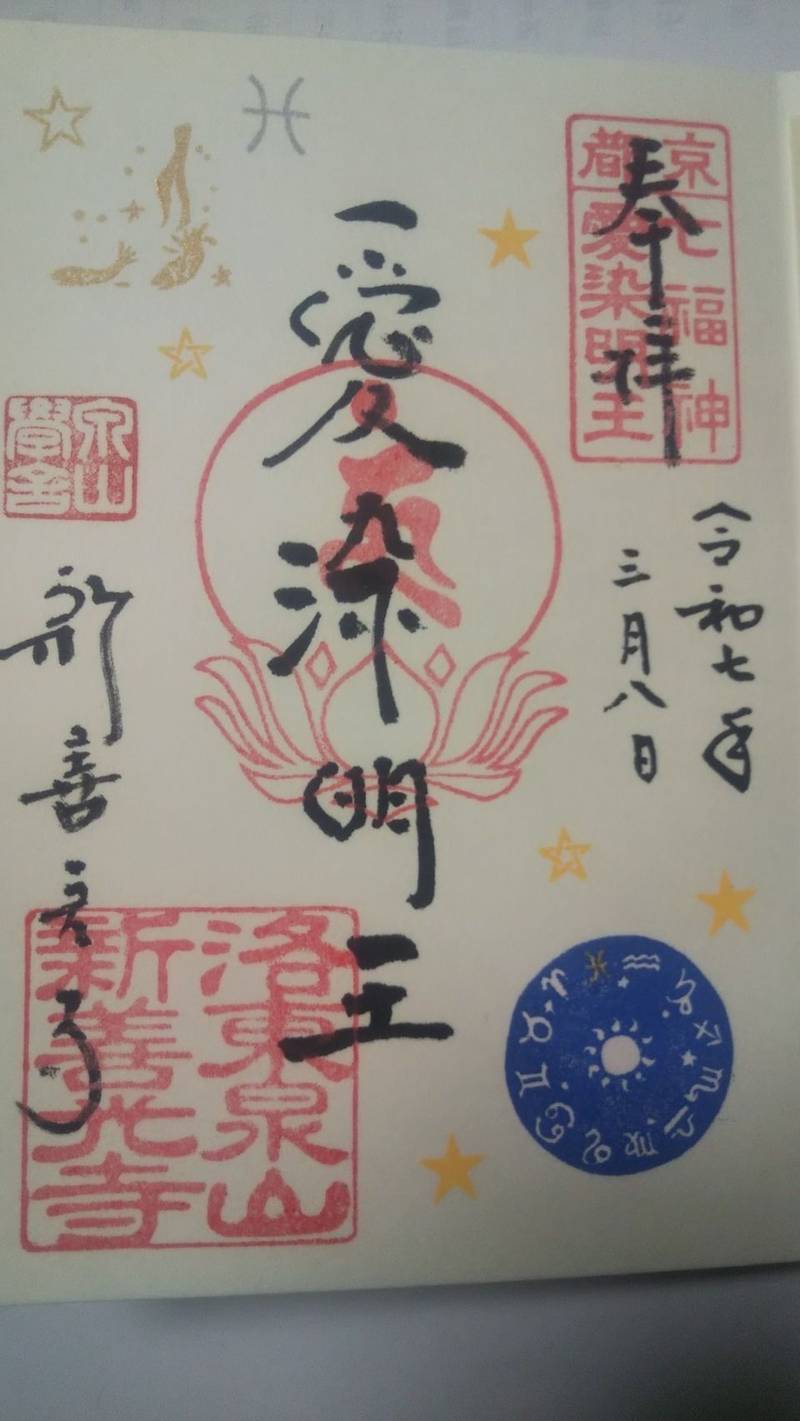 奉拝
京都
七福神
愛染明王
令和七年
三月八日
愛染明王
泉山
學舎
新善光寺
洛東泉山
新善光寺